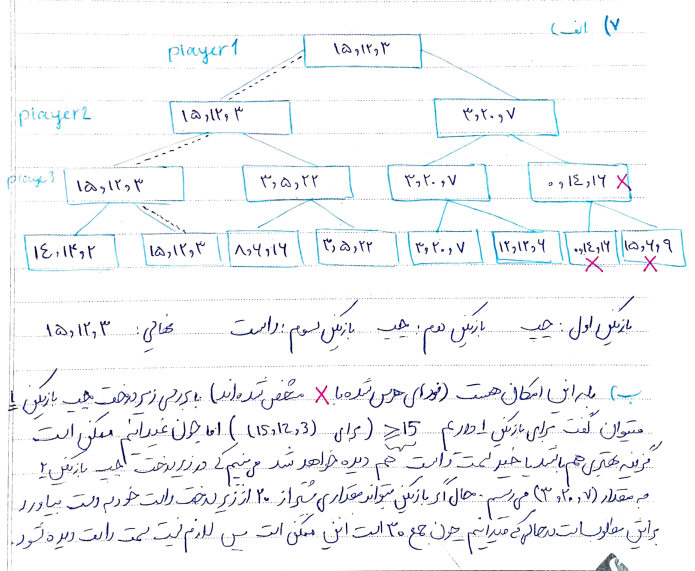 ۷) الف)
player 1
۱۵,۱۲,۳
player2
۱۵,۱۲,۳ ۳,۲۰,۷
player3
۱۵,۱۲,۳ ۳,۵,۲۲ ۳,۲۰,۷ ۰,۱۴,۱۶ ×
۱۴,۱۳,۲ ۱۵,۱۲,۳ ۸,۶,۱۶ ۳,۵,۲۲ ۳,۲۰,۷ ۱۲,۱۲,۶ ۰,۱۴,۱۶ ۱۵,۶,۹
× ×
بازیکن اول: چپ بازیکن دوم: چپ بازیکن سوم: راست نهایی: ۱۵,۱۲,۳
ب) بله این امکان هست (نودهای هرس شده با × مشخص شده اند) با بررسی زیر درخت چپ بازیکن ۱
میتوان گفت برای بازیکن ۱ داریم ≥15 (برای (15,12,3)) اما چون نمیدانیم ممکن است
گزینه بهتری هم باشد یا خیر سمت راست هم دیده خواهد شد میبینیم که در زیر درخت چپ بازیکن ۲
به مقدار (۳,۲۰,۷) می رسیم. حال اگر بازیکن بتواند مقداری بیشتر از ۲۰ از زیر درخت راست خود به دست بیاورد
برایش مطلوب است در حالی که میدانیم چون جمع ۳۰ است این ممکن است پس لازم نیست سمت راست دیده شود.